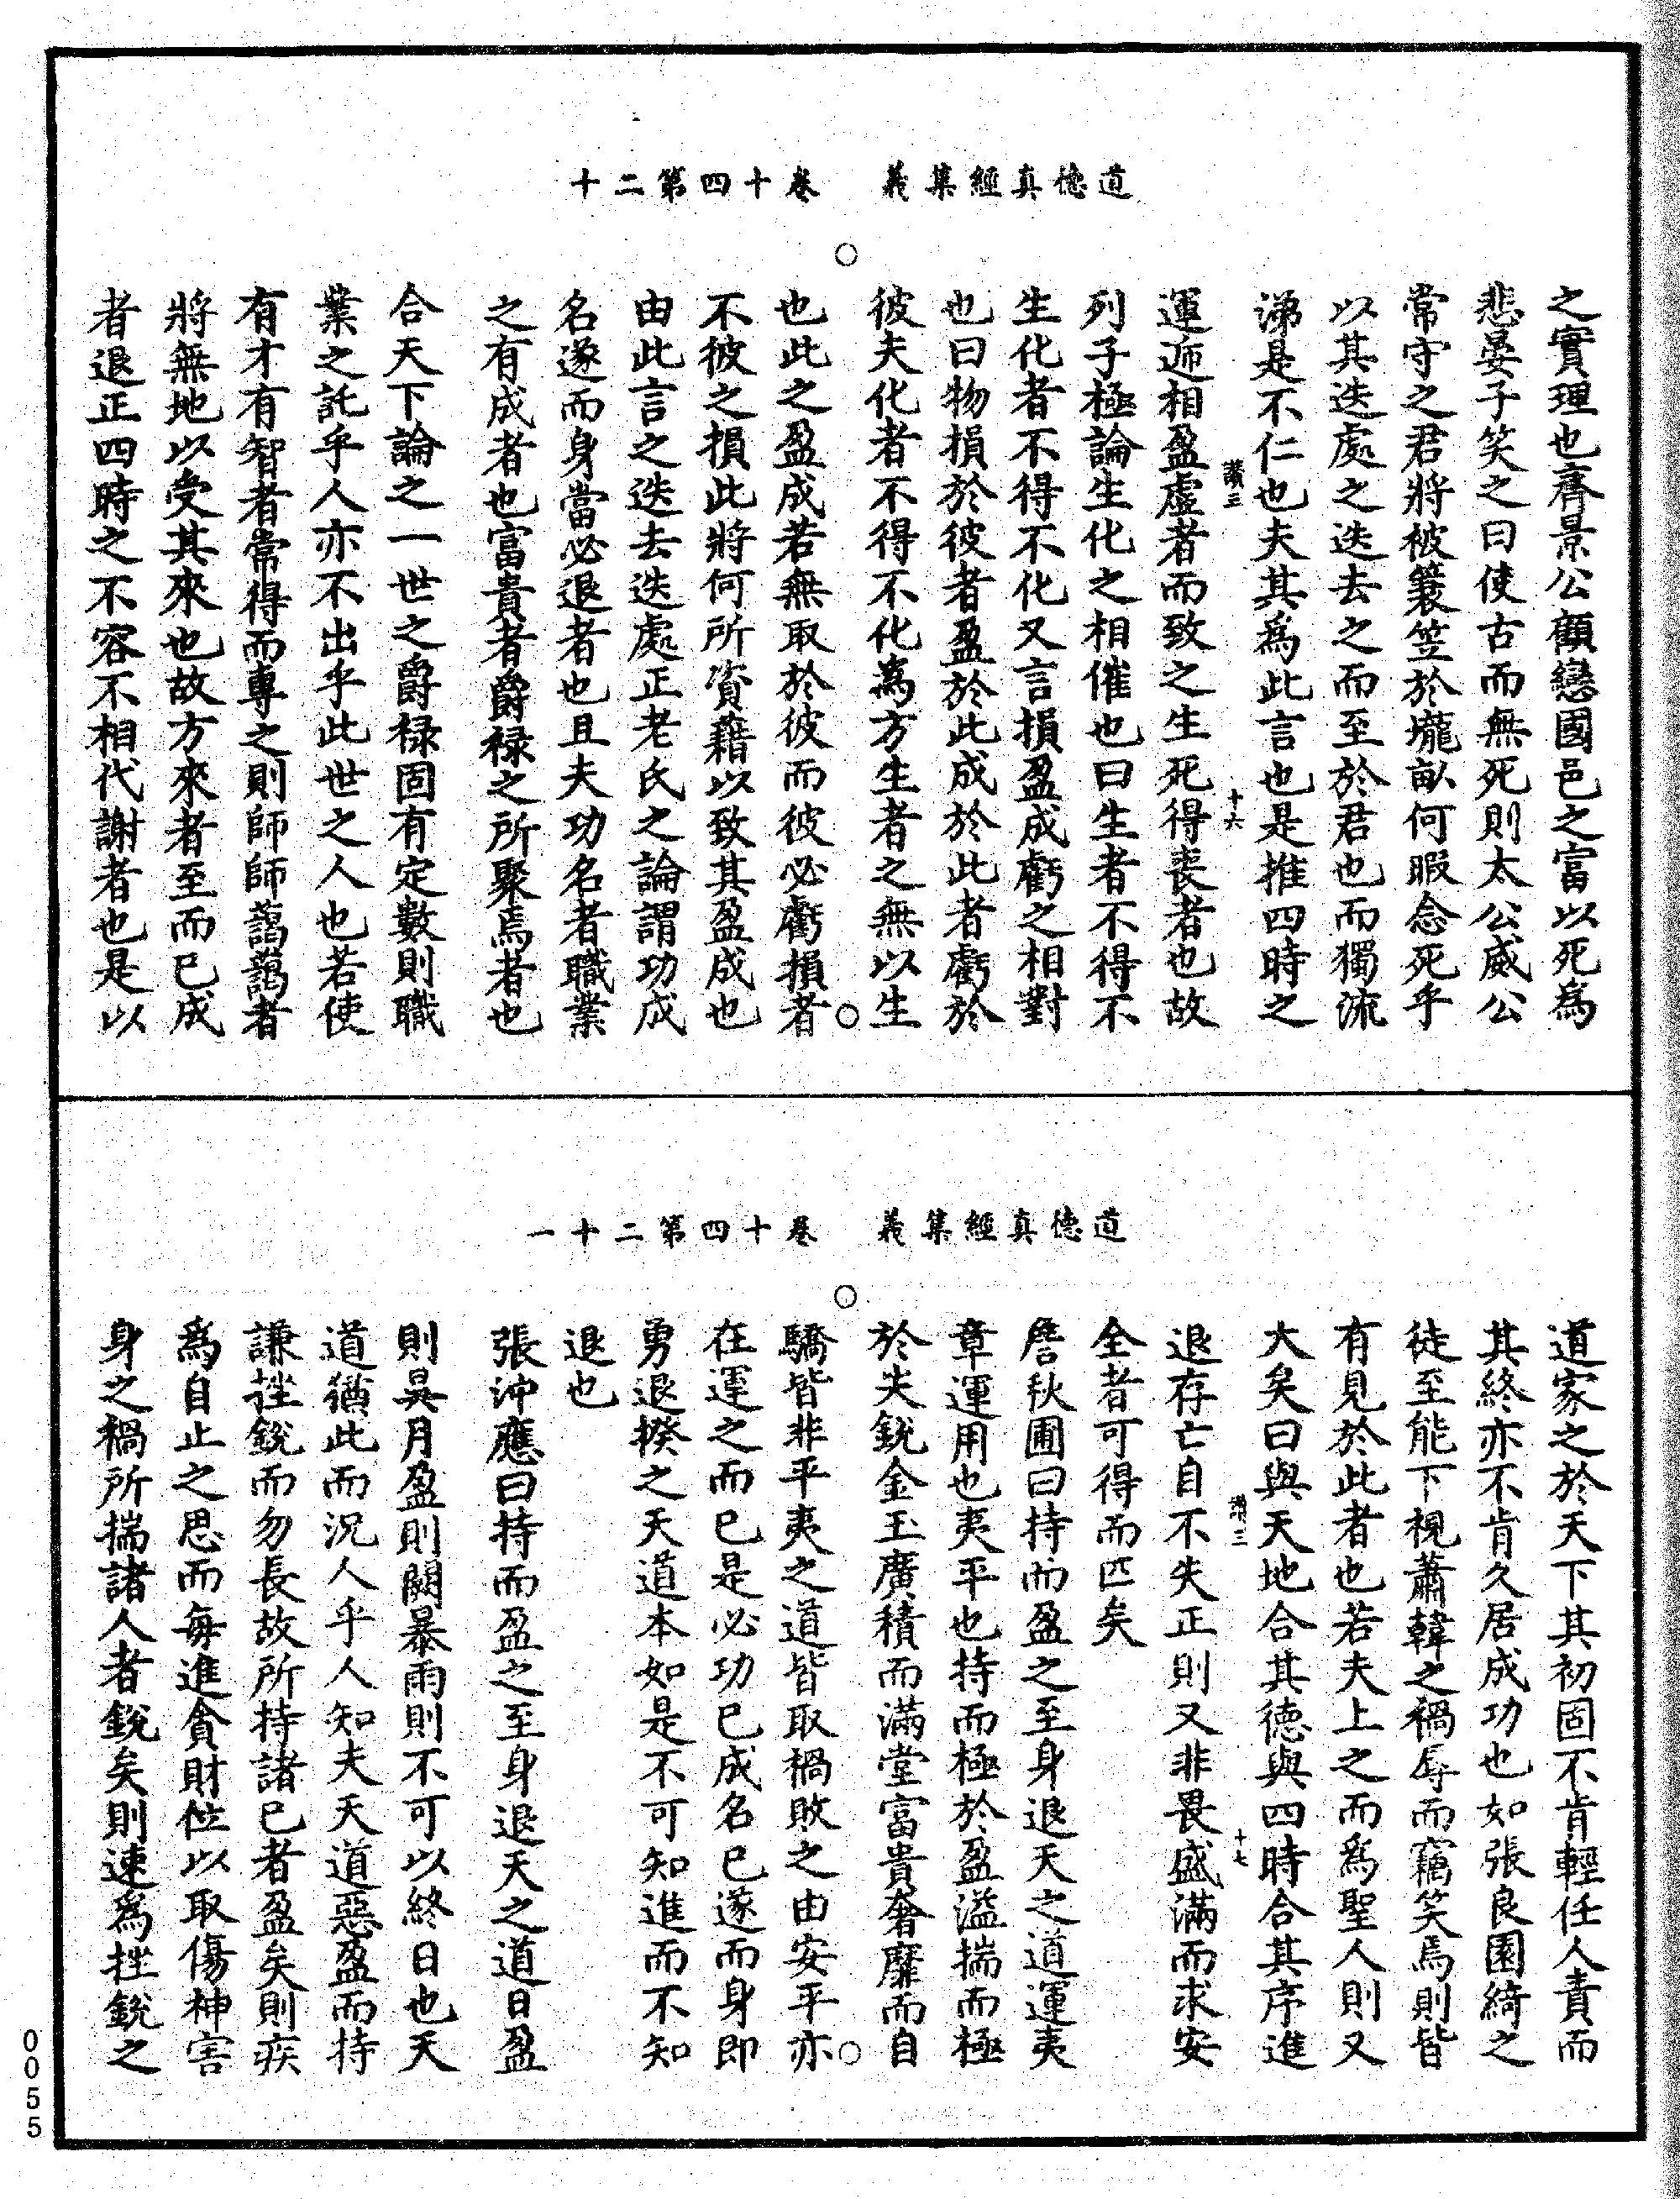 道德真經集義　卷十四第二十
之實理也齊景公顧戀國邑之富以死爲
悲晏子笑之曰使古而無死則太公威公
常守之君將被簑笠於壠畝何暇念死乎
以其迭處之迭去之而至於君也而獨流
涕是不仁也夫其爲此言也是推四時之
運迊相盈虛者而致之生死得喪者也故
列子極論生化之相催也曰生者不得不
生化者不得不化又言損盈成虧之相對
也曰物損於彼者盈於此成於此者虧於
彼夫化者不得不化爲方生者之無以生
也此之盈成若無取於彼而彼必虧損者
不彼之損此將何所資藉以致其盈成也
由此言之迭去迭處正老氏之論謂功成
名遂而身當必退者也且夫功名者職業
之有成者也富貴者爵祿之所聚焉者也
合天下論之一世之爵祿固有定數則職
業之託乎人亦不出乎此世之人也若使
有才有智者常得而專之則師師藹藹者
將無地以受其來也故方來者至而已成
者退正四時之不容不相代謝者也是以
道德真經集義　卷十四第二十一
道家之於天下其初固不肯輕任人責而
其終亦不肯久居成功也如張良園綺之
徒至能下視蕭韓之禍辱而竊笑焉則皆
有見於此者也若夫上之而爲聖人則又
大矣曰與天地合其德與四時合其序進
退存亡自不失正則又非畏盛滿而求安
全者可得而匹矣
詹秋圃曰持而盈之至身退天之道運夷
章運用也夷平也持而極於盈溢揣而極
於夫銳金玉廣積而滿堂富貴奢靡而自
驕皆非平夷之道皆取禍敗之由安平亦
在運之而已是必功已成名已遂而身即
勇退揆之天道本如是不可知進而不知
退也
張沖應曰持而盈之至身退天之道日盈
則昃月盈則闕暴雨則不可以終日也天
道猶此而況人乎人知夫天道惡盈而持
謙挫銳而勿長故所持諸已者盈矣則疾
爲自止之思而每進貪財位以取傷神害
身之禍所揣諸人者銳矣則速爲挫銳之
讃三
十六
讃三
十七
0055